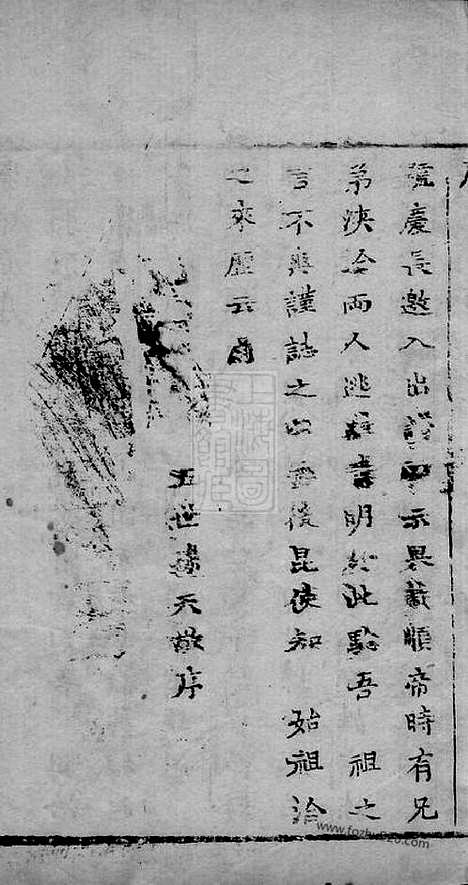 號慶長邀入出譜示異載順帝時有兄
弟浹洽兩人逃難書明於此騐吾 祖之
言不爽謹誌之以後昆使知 始祖洽
之來歷云爾
五世孫天敘序